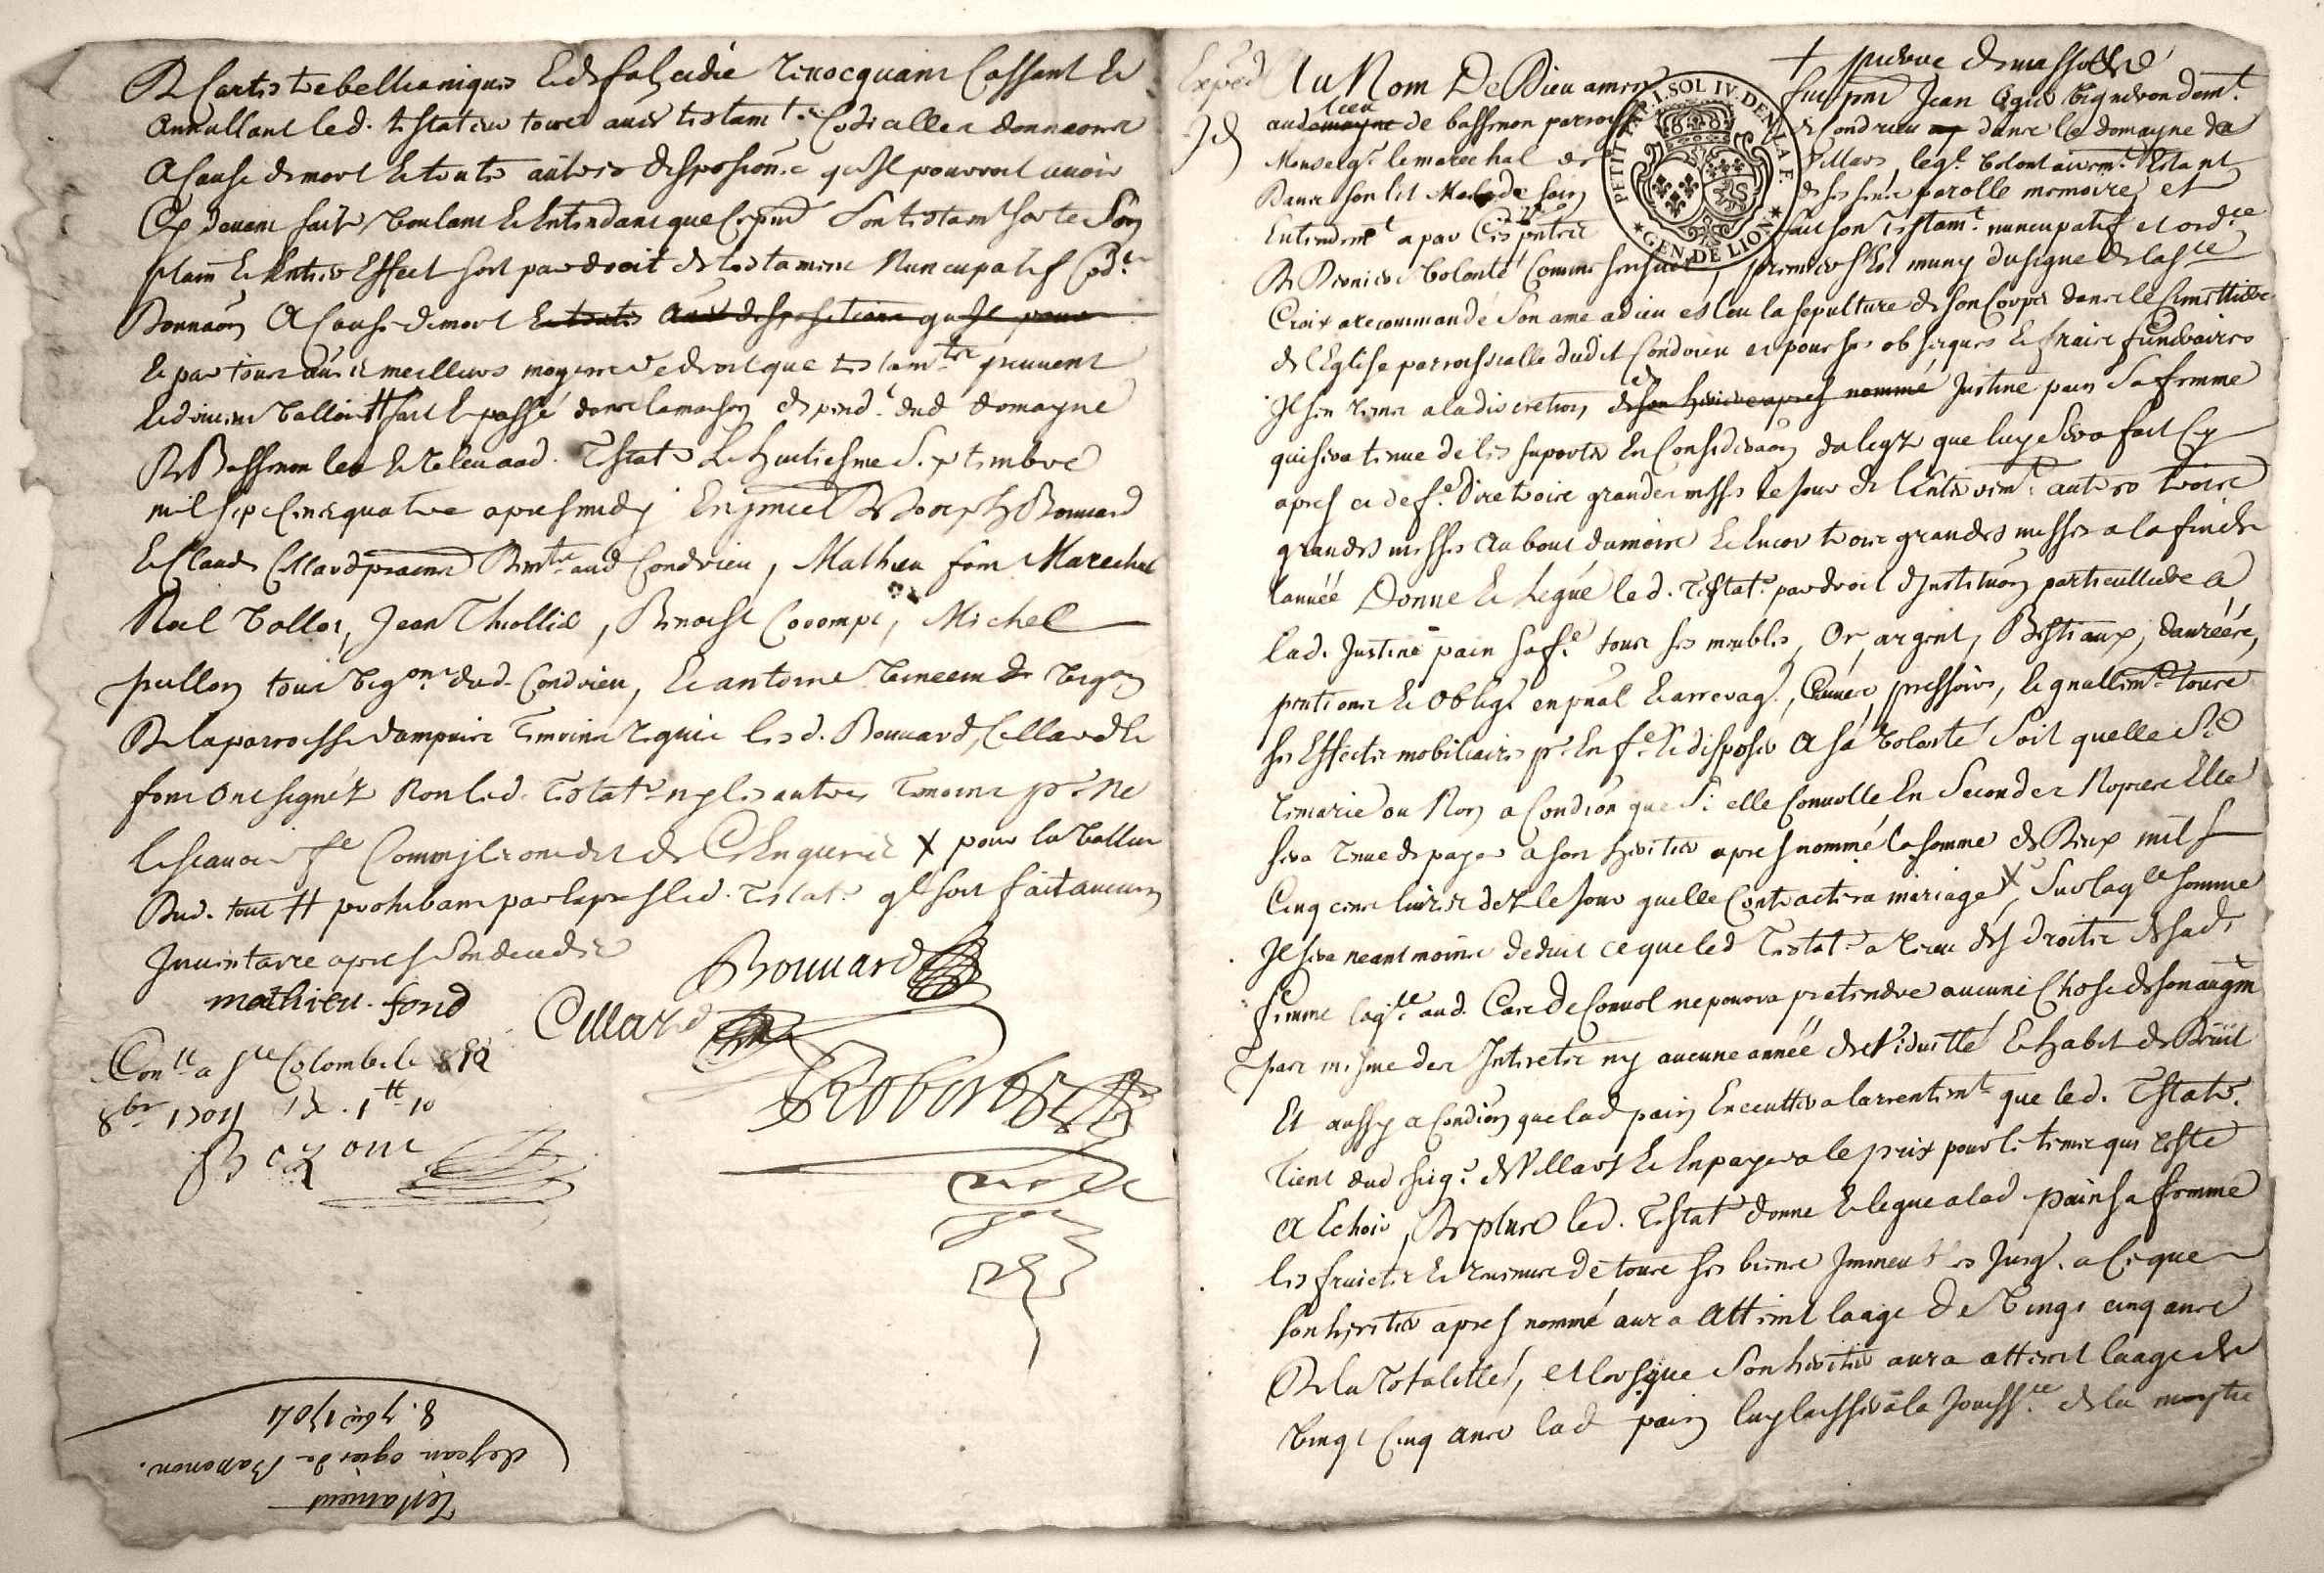 De Cartes trebellianiques Et de falcidie Revocquant Cassant Et
Annullant led. testateur tous autres testamt. Codicilles donnaons
A Cause de mort Et toutes autres disposions. qu'Il pourroit avoir
Cy devant fait, voulant Et Entendant que Ce pnt Son testamt sorte Son
plain Et Entier Effect soit par droit de testament Nuncupatif Cod.
Donnaon A Cause de mort Et toutes Autres dispositions qu Il pour
Et par tous autres meilleurs moyens de droit que testamts peuvent
Et doivent valloir # fait Et passé dans la maison depend.t dud domayne
De Bassenon led Testat. Le huitiesme Septembre
mil sept Cens quatre apres midy En pnce De Bouvard
Et Claude Cillard aud Condrieu, Mathieu fond Marechal
Noel vallos, Jean Thiollier, Benoist Corompt, Michel
pullon tous vign. dud. Condrieu, Et antoine vign
De la parroisse dampuis Temoins Requis lesd. Bouvard, Cillard Et
fond ont signéz Non led. Testat. ny les autres Temoins pr. Ne
le scavoir fe Comme Ils ont dit de Ce Enquis X pour la valleur
Dud. tout # prohibant par Expres led. Testat. q.l soit fait aucun
Inventaire apres Son decedz
mathieu. fond
Bouvard
Cillard
Con.lle a Ste Colombe le
8br 1704 1tt 10
Bezont
Testament
de Jean ogier de Bassenon.
8. 7bre 1704
Exped
Au Nom De Dieu amen
+ pnt Jean Ogier vigneron demt.
lieu
au domayne de bassenon parroisse de Condrieu dans Le domayne de
Monseigr. le marechal de Villars, leq.l volontairemt. Estant
Dans son lit Malade sain de ses sens parolle memoire et
Entendemt a par Ces pntes fait son Testamt. nuncupatif et ordce
De Derniere volonté Comme sensuit, premier s'Est muny du signe de la Ste
Croix a recommandé Son ame a dieu esleu la sepulture de son Corps dans le Cimettiere
de l'Eglise parrochialle dudit Condrieu et pour ses obseques Et fraix funeraires
Il s'en remet a la discretion de son heritier apres nommé Justine pain Sa femme
qui sera tenue de les suporter En Consideraon du legz que luy Sera fait Cy
apres et de fe. dire trois grandes messes le jour de l'Enterremt. autres trois
grandes messes au bout du mois Et Encor trois grandes messes a la fin de
l'année Donne Et Legue led. Testat. par droit d'Instituon particulliere a
lad. Justine pain sa fe. tous ses meubles, Or, argent, Bestiaux, danréés,
pentions Et Obligé en pnal Et arrerag., Cuves, pressoirs, Et gnallemt. tous
ses Effects mobiliairs pr. En fe. Et disposer A sa volonté Soit quelle Se
remarie ou Non a Condion que Si elle Convolle En Secondes Nopces Elle
sera tenue de payer a son heritier apres nommé la somme de Deux mil
Cinq cens livres dez le jour quelle Contractera mariage X, Sur laqlle somme
Il sera neantmoins deduit ce que led Testat. a receu des droits de sad.
femme laqlle. aud. Cas de Convol ne pourra pretendre aucune Chose de son augm
pas mesme des Interetz ny aucune année de Viduitté Et habit de Duil
Et aussy a Condion que lad pain Executtera l'arrentemt que led. Testat.
Tient dud seig. de Villars Et En payera le prix pour le terme qui reste
a Echoir, De plus led. Testat. donne Et legue a lad pain sa femme
les fruicts Et revenus de tous ses biens Immeubles Jusq. a Ce que
son heritier apres nommé aura Atteint laage De vingt cinq ans
De la Totalitté, et lorsque Son heritier aura atteint laage de
vingt Cinq ans lad pain luy laissera la Jouisse de la moytié
PETIT PAP. I. SOL IV. DEN LA F.
GEN. DE LION